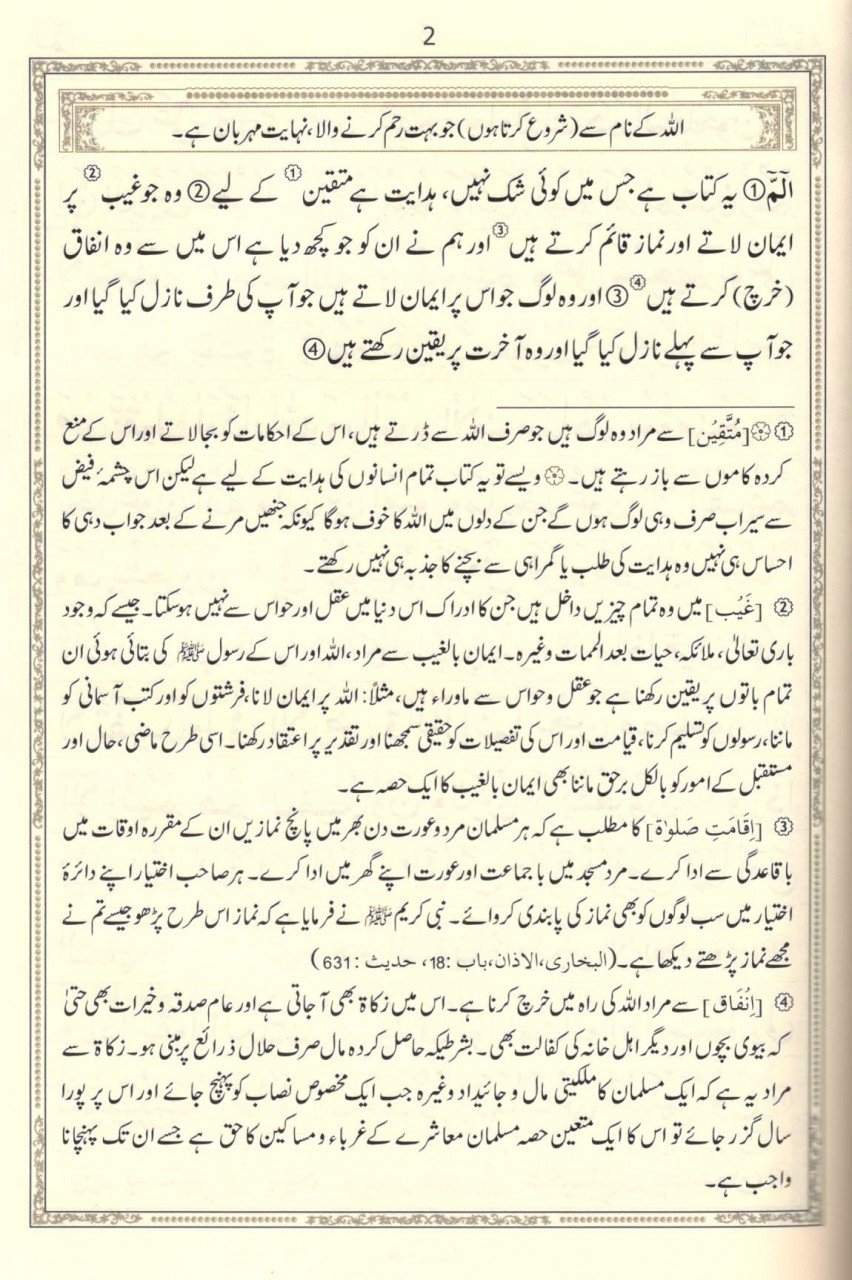 2
اللہ کے نام سے (شروع کرتا ہوں) جو بہت رحم کرنے والا، نہایت مہربان ہے۔
الٓمّٓ① یہ کتاب ہے جس میں کوئی شک نہیں، ہدایت ہے متقین① کے لیے② وہ جو غیب② پر
ایمان لاتے اور نماز قائم کرتے ہیں③ اور ہم نے ان کو جو کچھ دیا ہے اس میں سے وہ انفاق
(خرچ) کرتے ہیں④ ③ اور وہ لوگ جو اس پر ایمان لاتے ہیں جو آپ کی طرف نازل کیا گیا اور
جو آپ سے پہلے نازل کیا گیا اور وہ آخرت پر یقین رکھتے ہیں④
① ۞ [مُتَّقِیْن] سے مراد وہ لوگ ہیں جو صرف اللہ سے ڈرتے ہیں، اس کے احکامات کو بجا لاتے اور اس کے منع
کردہ کاموں سے باز رہتے ہیں۔ ۞ ویسے تو یہ کتاب تمام انسانوں کی ہدایت کے لیے ہے لیکن اس چشمۂ فیض
سے سیراب صرف وہی لوگ ہوں گے جن کے دلوں میں اللہ کا خوف ہوگا کیونکہ جنھیں مرنے کے بعد جواب دہی کا
احساس ہی نہیں وہ ہدایت کی طلب یا گمراہی سے بچنے کا جذبہ ہی نہیں رکھتے۔
② [غَیْب] میں وہ تمام چیزیں داخل ہیں جن کا ادراک اس دنیا میں عقل اور حواس سے نہیں ہوسکتا۔ جیسے کہ وجود
باری تعالیٰ، ملائکہ، حیات بعد الممات وغیرہ۔ ایمان بالغیب سے مراد، اللہ اور اس کے رسول ﷺ کی بتائی ہوئی ان
تمام باتوں پر یقین رکھنا ہے جو عقل وحواس سے ماوراء ہیں، مثلاً: اللہ پر ایمان لانا، فرشتوں کو اور کتب آسمانی کو
ماننا، رسولوں کو تسلیم کرنا، قیامت اور اس کی تفصیلات کو حقیقی سمجھنا اور تقدیر پر اعتقاد رکھنا۔ اسی طرح ماضی، حال اور
مستقبل کے امور کو بالکل برحق ماننا بھی ایمان بالغیب کا ایک حصہ ہے۔
③ [اِقَامَتِ صَلوٰۃ] کا مطلب ہے کہ ہر مسلمان مرد وعورت دن بھر میں پانچ نمازیں ان کے مقررہ اوقات میں
باقاعدگی سے ادا کرے۔ مرد مسجد میں باجماعت اور عورت اپنے گھر میں ادا کرے۔ ہر صاحب اختیار اپنے دائرۂ
اختیار میں سب لوگوں کو بھی نماز کی پابندی کروائے۔ نبی کریم ﷺ نے فرمایا ہے کہ نماز اس طرح پڑھو جیسے تم نے
مجھے نماز پڑھتے دیکھا ہے۔ (البخاری، الاذان، باب :18، حدیث :631)
④ [اِنْفَاق] سے مراد اللہ کی راہ میں خرچ کرنا ہے۔ اس میں زکاۃ بھی آجاتی ہے اور عام صدقہ وخیرات بھی حتیٰ
کہ بیوی بچوں اور دیگر اہل خانہ کی کفالت بھی۔ بشرطیکہ حاصل کردہ مال صرف حلال ذرائع پر مبنی ہو۔ زکاۃ سے
مراد یہ ہے کہ ایک مسلمان کا ملکیتی مال و جائیداد وغیرہ جب ایک مخصوص نصاب کو پہنچ جائے اور اس پر پورا
سال گزر جائے تو اس کا ایک متعین حصہ مسلمان معاشرے کے غرباء ومساکین کا حق ہے جسے ان تک پہنچانا
واجب ہے۔